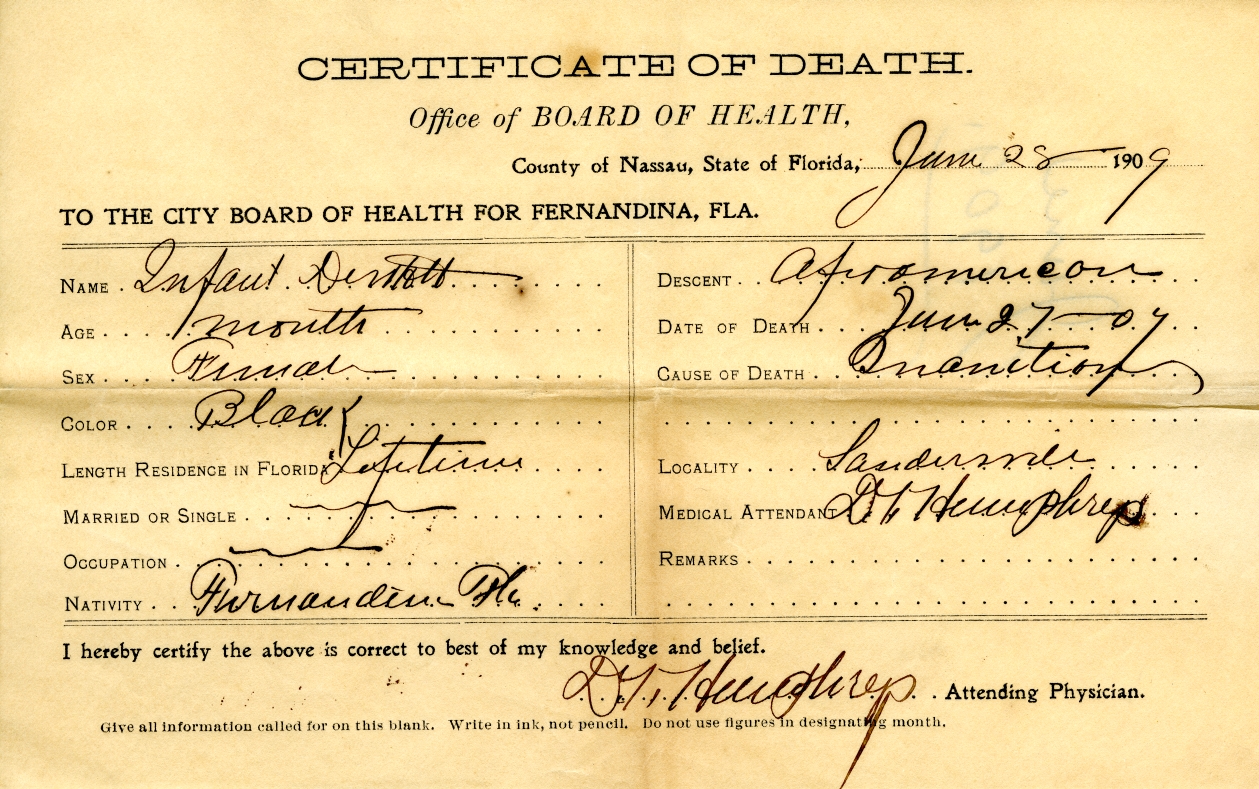 CERTIFICATE OF DEATH.
Office of BOARD OF HEALTH,
County of Nassau, State of Florida, June 28 1909
TO THE CITY BOARD OF HEALTH FOR FERNANDINA, FLA.
NAME Infant
AGE month
SEX Female
COLOR Black
LENGTH RESIDENCE IN FLORIDA Lifetime
MARRIED OR SINGLE
OCCUPATION
NATIVITY Fernandina Fla.
DESCENT Afroamerican
DATE OF DEATH June 27 - 09
CAUSE OF DEATH Inanition
LOCALITY
MEDICAL ATTENDANT Humphreys
REMARKS
I hereby certify the above is correct to best of my knowledge and belief.
Humphreys Attending Physician.
Give all information called for on this blank. Write in ink, not pencil. Do not use figures in designating month.